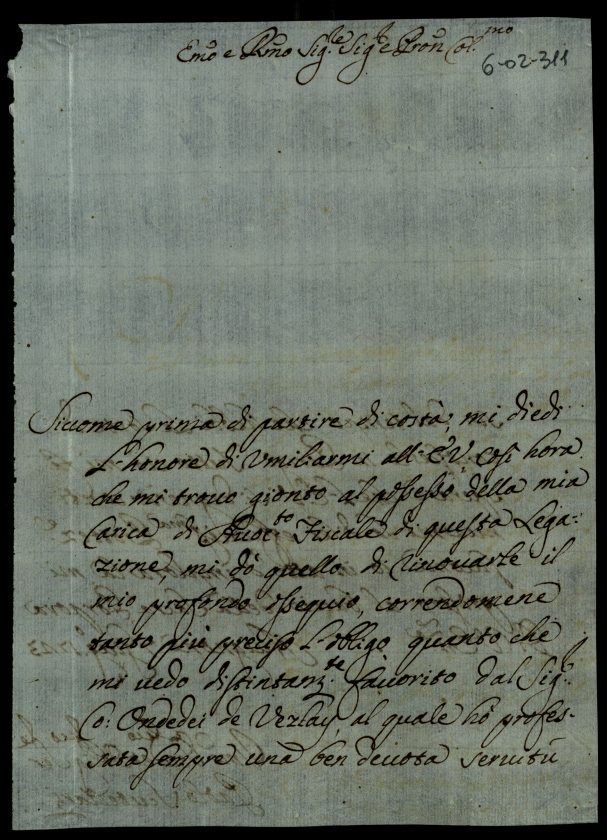 Emo e Rmo Sig.re Sig.re e Pron Col.mo
6-02-311
Siccome prima di partire di costà, mi diedi
L'honore di Umiliarmi all' E.V. così hora
che mi trovo gionto al possesso della mia
Carica di Avoc.to Fiscale di questa Lega-
zione, mi dò quello di rinovarle il
mio profondo ossequio, correndomene
tanto più preciso l'obligo quanto che
mi vedo distintam.te favorito dal Sig.r
Co: Ondedei de Vezlay, al quale hò profes-
sata sempre una ben devota servitù